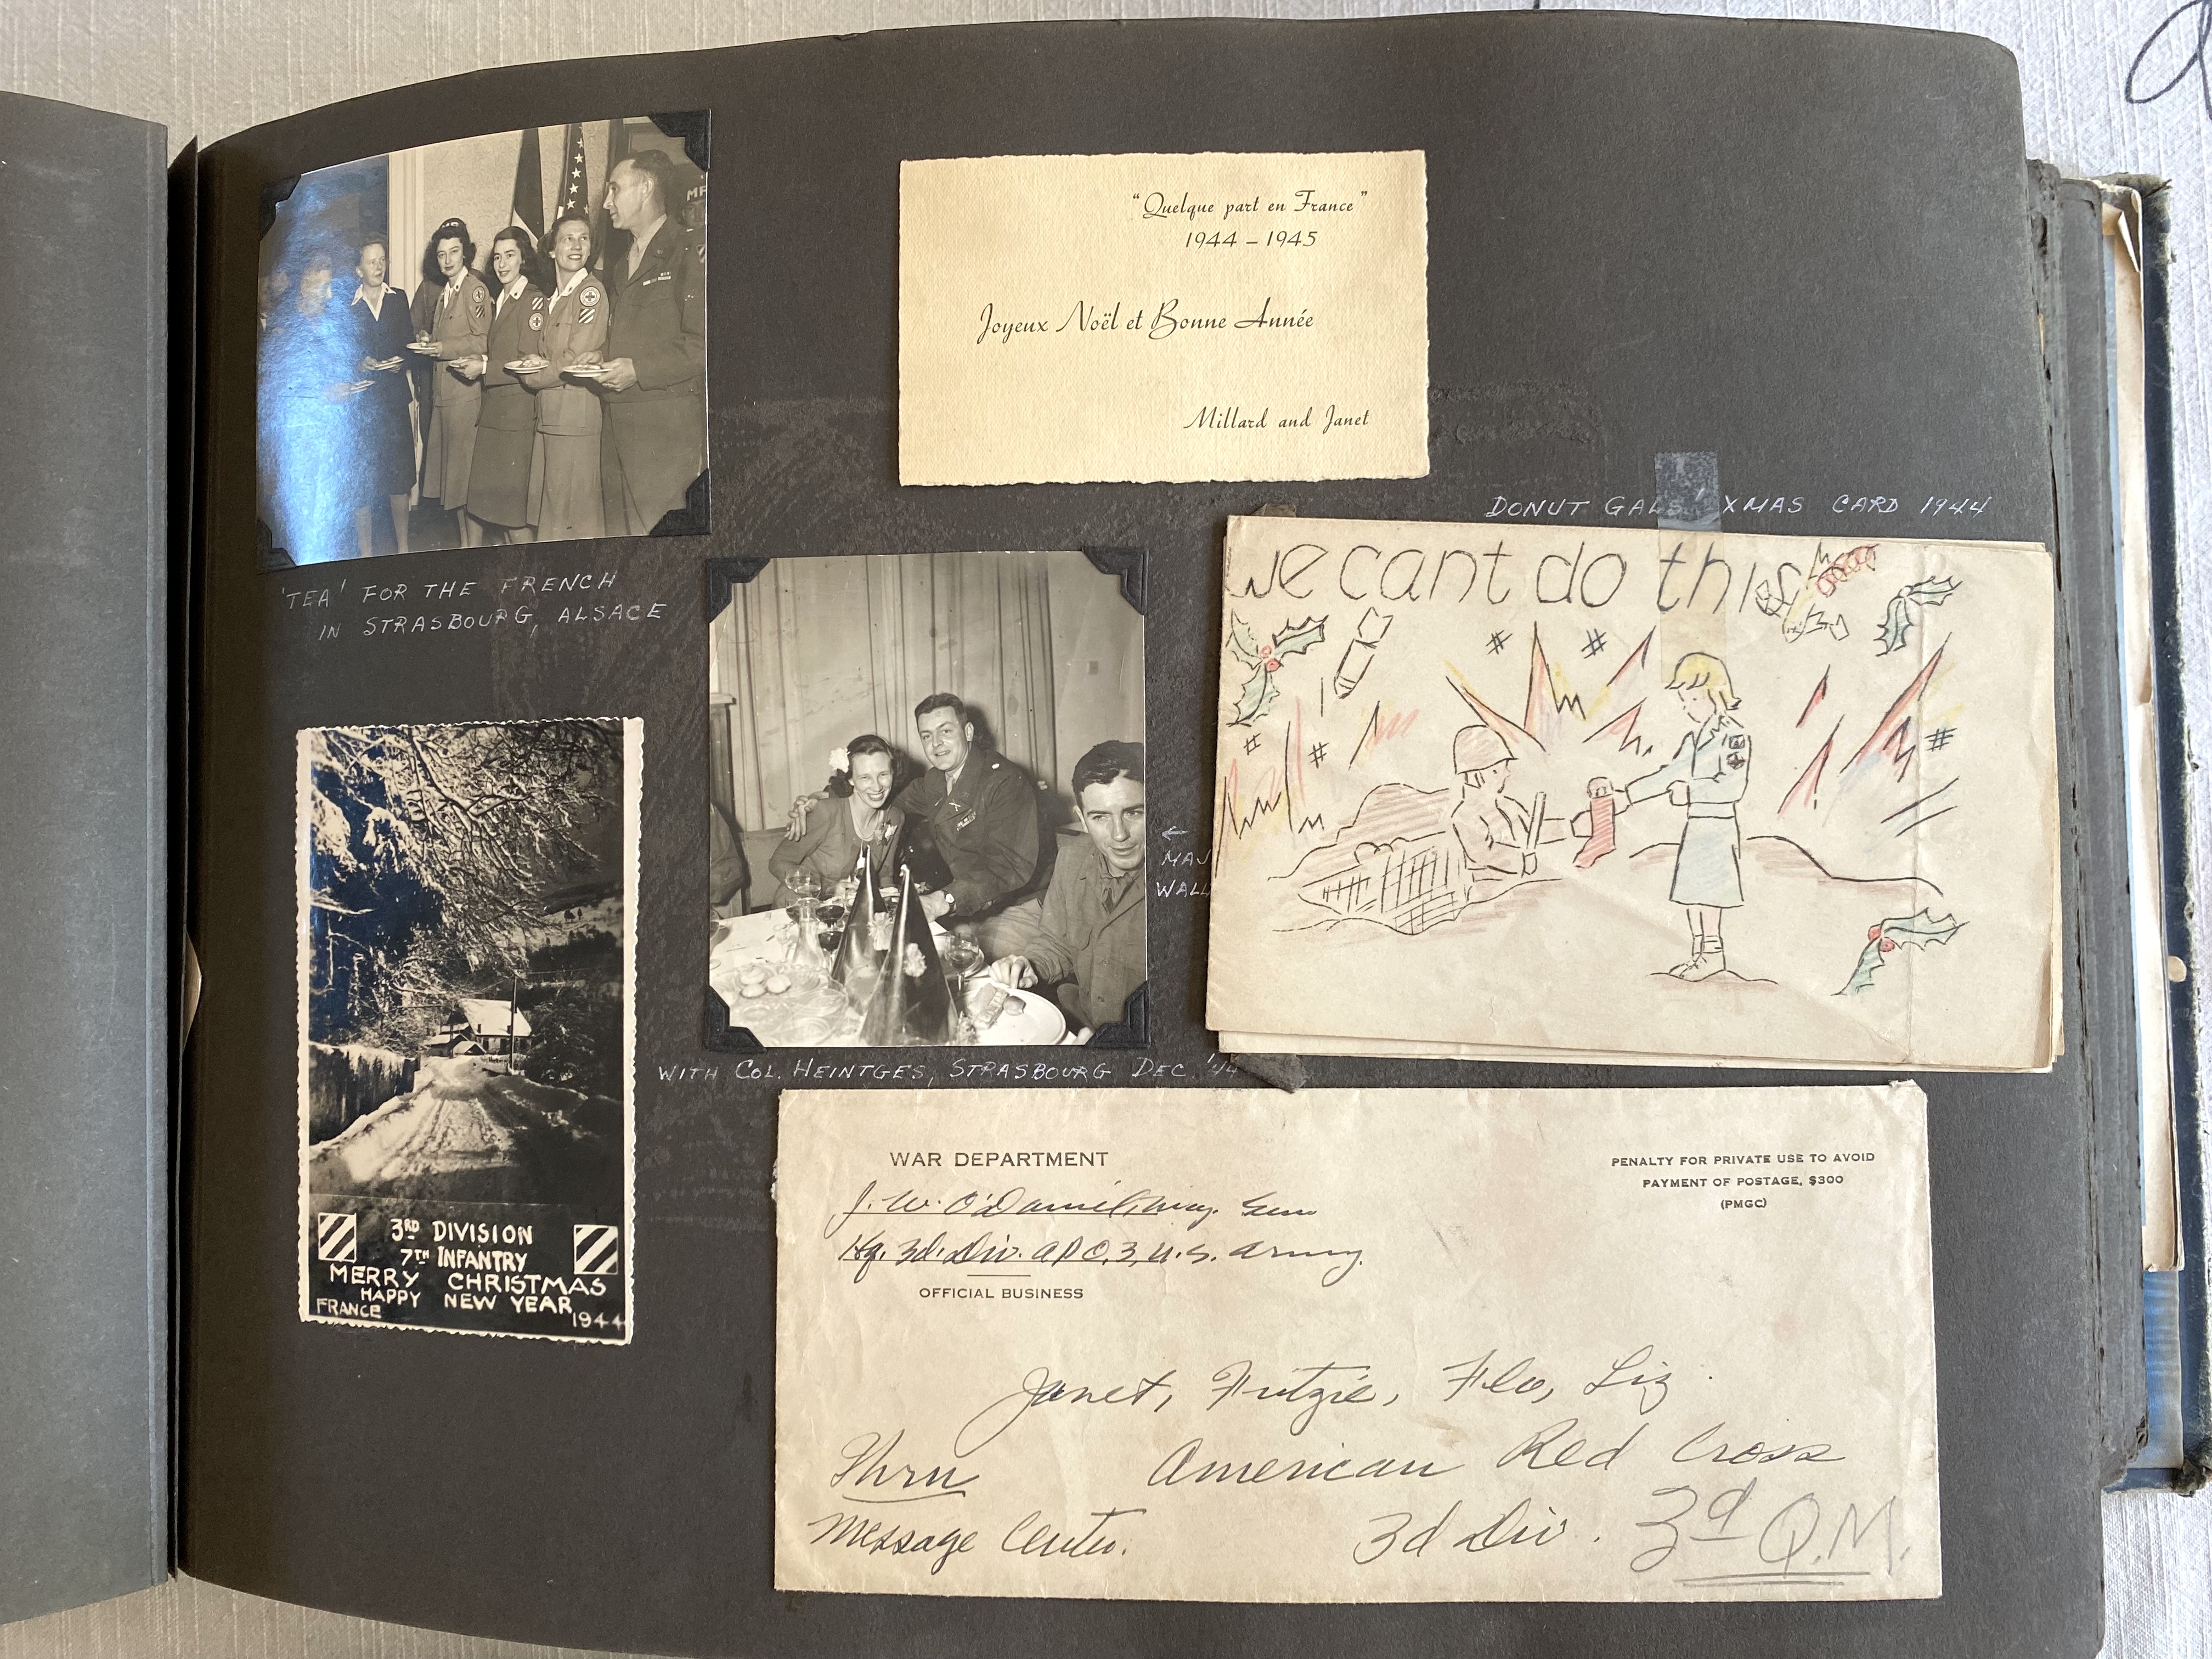 'TEA' FOR THE FRENCH
IN STRASBOURG, ALSACE
"Quelque part en France"
1944 – 1945
Joyeux Noël et Bonne Année
Millard and Janet
DONUT GALS' XMAS CARD 1944
We cant do this
# #
# # #
← MAJ
WALL
WITH COL. HEINTGES, STRASBOURG DEC. '44
3RD DIVISION
7TH INFANTRY
MERRY CHRISTMAS
HAPPY NEW YEAR
FRANCE 1944
WAR DEPARTMENT
J. W. O'Daniel, Maj. Gen
Hq. 3d. Div. APO. 3, U.S. Army.
OFFICIAL BUSINESS
PENALTY FOR PRIVATE USE TO AVOID
PAYMENT OF POSTAGE, $300
(PMGC)
Janet, Fritzie, Flo, Liz
American Red Cross
3d Div. 3d Q.M.
Thru
Message Center.